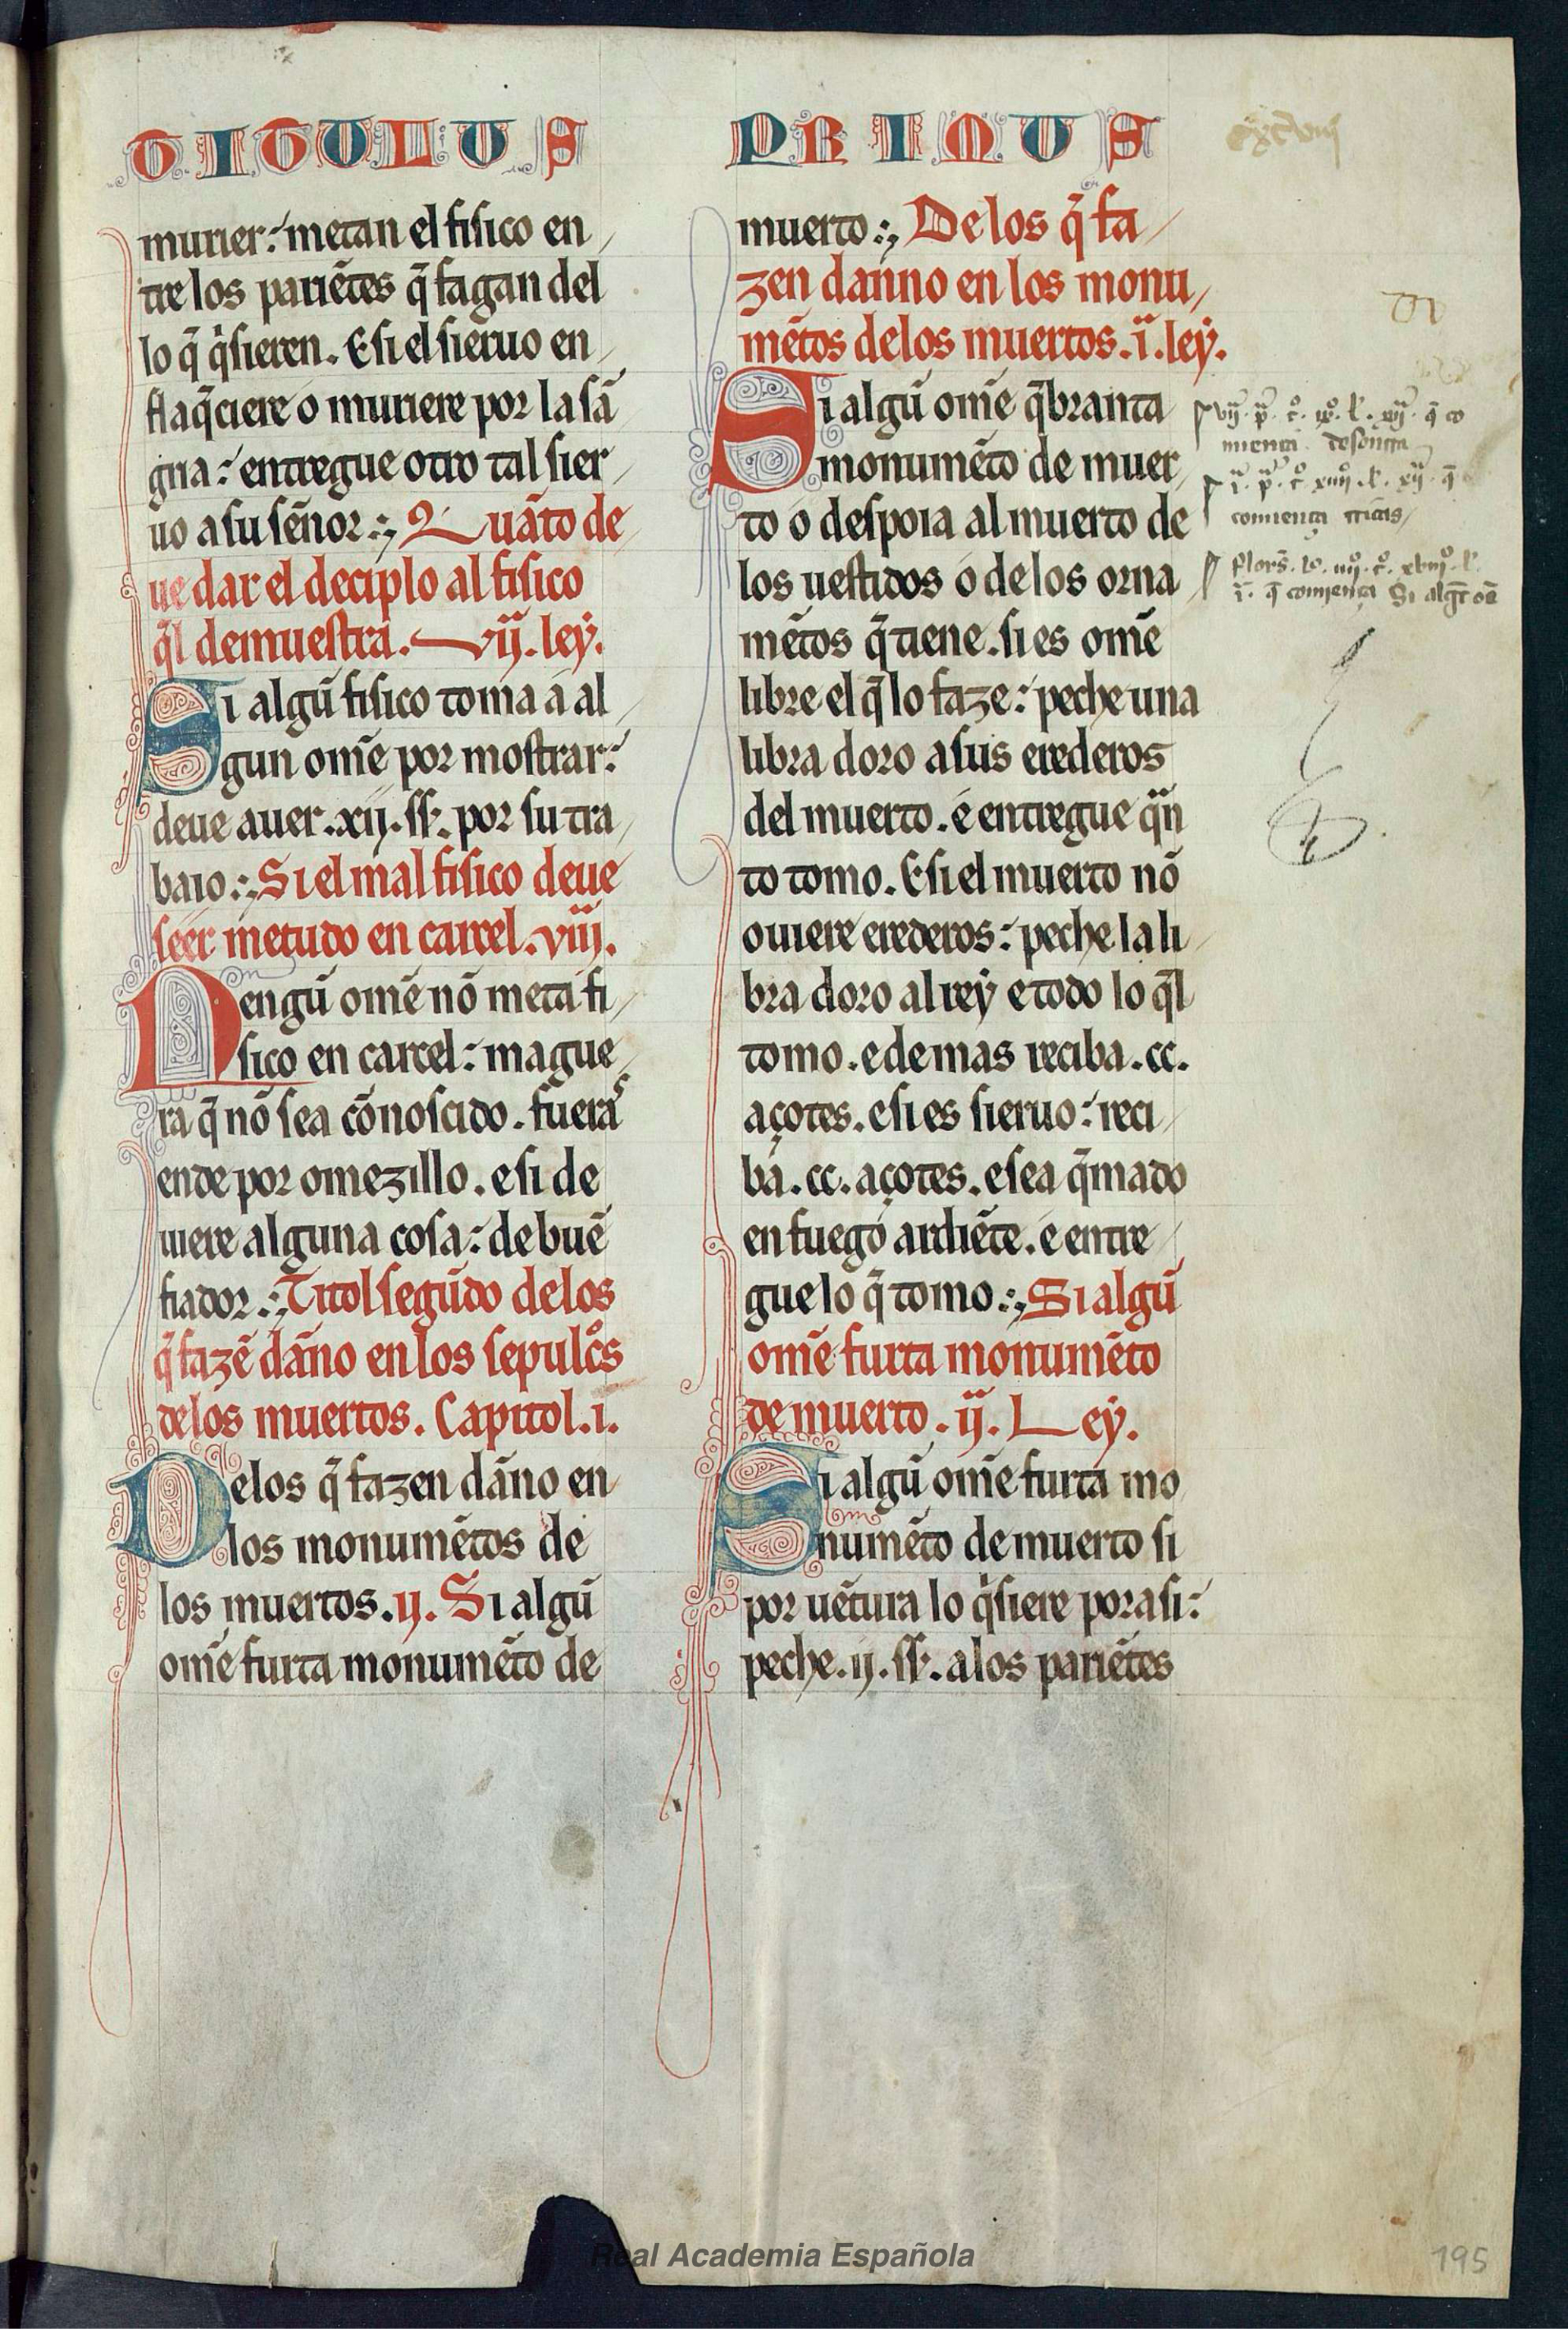 TITULUS
murier: metan el fisico en
tre los pariẽtes q̃ fagan del
lo q̃ q̇sieren. E si el sieruo en
flaq̃ciere o muriere por la sã
gria: entregue otro tal sier
uo a su sẽnor:; Quãto de
ue dar el deciplo al fisico
q̃l demuestra. vij. ley.
Si algũ fisico toma a al
gun om̃e por mostrar:
deue auer. xij. ss. por su tra
baio:; Si el mal fisico deue
seer metudo en carcel. viij.
Nengũ om̃e nõ meta fi
sico en carcel: mague
ra q̃ nõ sea cõnoscido. fueras
ende por omezillo. e si de
uiere alguna cosa: de buẽ
fiador:; Titol segũdo de los
q̃ fazẽ dãno en los sepulcͦs
de los muertos. Capitol. i.
De los q̃ fazen dãno en
los monumẽtos de
los muertos. ij. Si algũ
om̃e furta monumẽto de
PRIMUS
muerto:; De los q̃ fa
zen danno en los monu
mẽtos de los muertos. i. ley.
Si algũ om̃e q̃branta
monumẽto de muer
to o despoia al muerto de
los uestidos o de los orna
mẽtos q̃ tiene. si es om̃e
libre el q̃ lo faze: peche una
libra doro a sus erederos
del muerto. e entregue qᷓn
to tomo. E si el muerto nõ
ouiere erederos: peche la li
bra doro al rey e todo lo q̃l
tomo. e demas reciba. cc.
açotes. e si es sieruo: reci
ba. cc. açotes. e sea q̃mado
en fuego ardiẽte. e entre
gue lo q̃ tomo:; Si algũ
om̃e furta monumẽto
de muerto. ij. Ley.
Si algũ om̃e furta mo
numẽto de muerto si
por uẽtura lo q̇siere pora si:
peche. ij. ss. a los pariẽtes
vij. p. t. ix. l. xij. q̃ co
miença desonrra
i. p. t. xiiij. l. xij. q̃
comiença
iiij. t. xviij. l.
i. q̃ comiença Si algũ oẽ
Real Academia Española
195